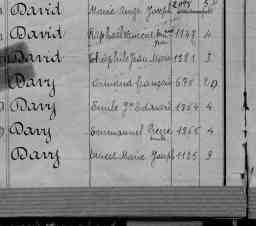 David Marie Ange Joseph 2004 5
David Raphael Vincent 1149 4
David Théophile Jean Marie 1281 3
Davy Armand François 678 2
Davy Emile Edouard 1764 4
Davy Emmanuel Pierre 1765 4
Davy Ernest Marie Joseph 1125 3